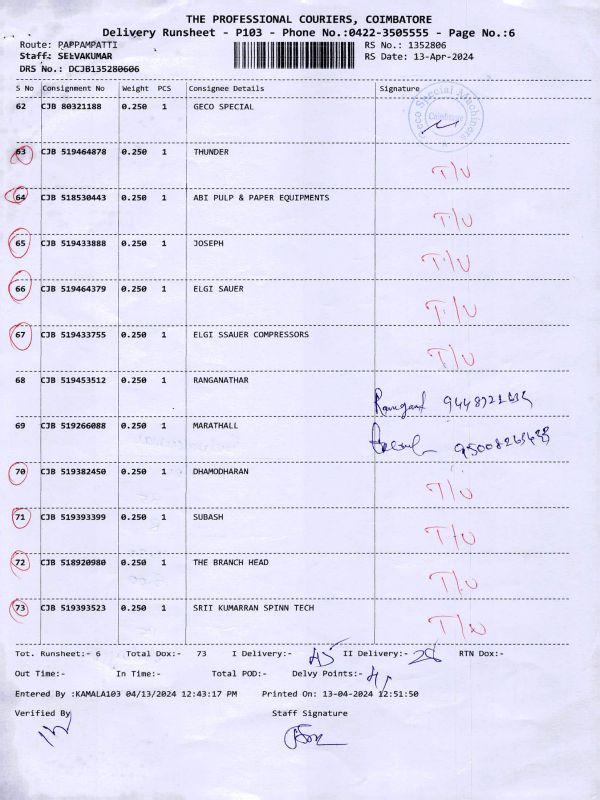 THE PROFESSIONAL COURIERS, COIMBATORE
Delivery Runsheet - P103 - Phone No.:0422-3505555 - Page No.:6
Route: PAPPAMPATTI RS No.: 1352806
Staff: SELVAKUMAR RS Date: 13-Apr-2024
DRS No.: DCJB135280606
S No Consignment No Weight PCS Consignee Details Signature
62 CJB 80321188 0.250 1 GECO SPECIAL
63 CJB 519464878 0.250 1 THUNDER T/U
64 CJB 518530443 0.250 1 ABI PULP & PAPER EQUIPMENTS T/U
65 CJB 519433888 0.250 1 JOSEPH T/U
66 CJB 519464379 0.250 1 ELGI SAUER T/U
67 CJB 519433755 0.250 1 ELGI SSAUER COMPRESSORS T/U
68 CJB 519453512 0.250 1 RANGANATHAR
69 CJB 519266088 0.250 1 MARATHALL
70 CJB 519382450 0.250 1 DHAMODHARAN T/U
71 CJB 519393399 0.250 1 SUBASH T/U
72 CJB 518920980 0.250 1 THE BRANCH HEAD T/U
73 CJB 519393523 0.250 1 SRII KUMARRAN SPINN TECH T/U
Tot. Runsheet:- 6 Total Dox:- 73 I Delivery:- 45 II Delivery:- 28 RTN Dox:-
Out Time:- In Time:- Total POD:- Delvy Points:-
Entered By :KAMALA103 04/13/2024 12:43:17 PM Printed On: 13-04-2024 12:51:50
Verified By Staff Signature